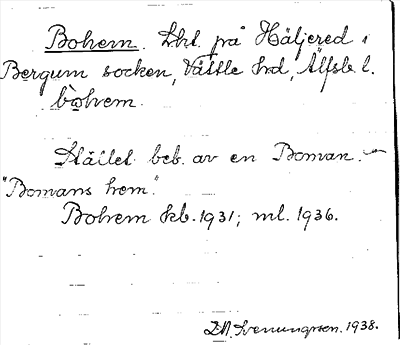 Bohem. Lht. på Häljered i
Bergum socken, Vättle hd, Älfsb. l.
bòhem.
Stället beb. av en Boman. –
"Bomans hem."
Bohem kb. 1931; ml. 1936.
Svenungsson. 1938.